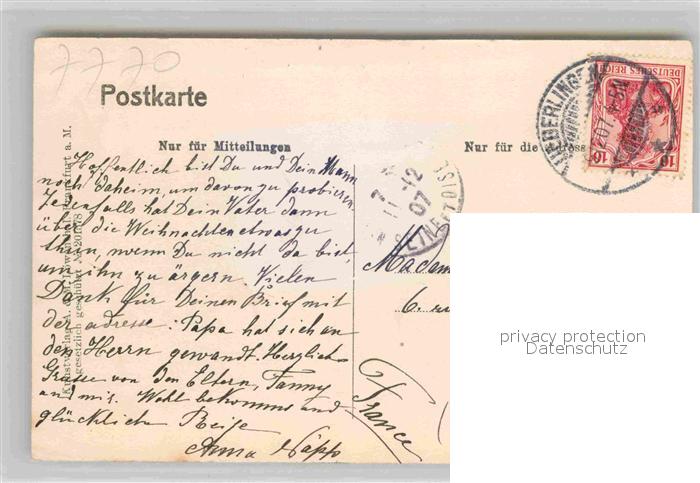 7770
Postkarte
Nur für Mitteilungen
Nur für die Adresse
DEUTSCHES REICH
10 10
UEBERLINGEN
Hoffentlich bist Du und Dein Mann
noch daheim, um davon zu probieren.
Jedenfalls hat Dein Vater dann
über die Weihnachten etwas zu
thun, wenn Du nicht da bist
um ihn zu ärgern. Vielen
Dank für Deinen Brief mit
der adresse: Papa hat sich an
den Herrn gewandt. Herzliche
Grüsse von den Eltern, Fanny
und mir. Wohl bekomms und
glückliche Reise
Anna
Madam
France
11-12
07
Kunstverlag Frankfurt a. M.
gesetzlich geschützt
privacy protection
Datenschutz